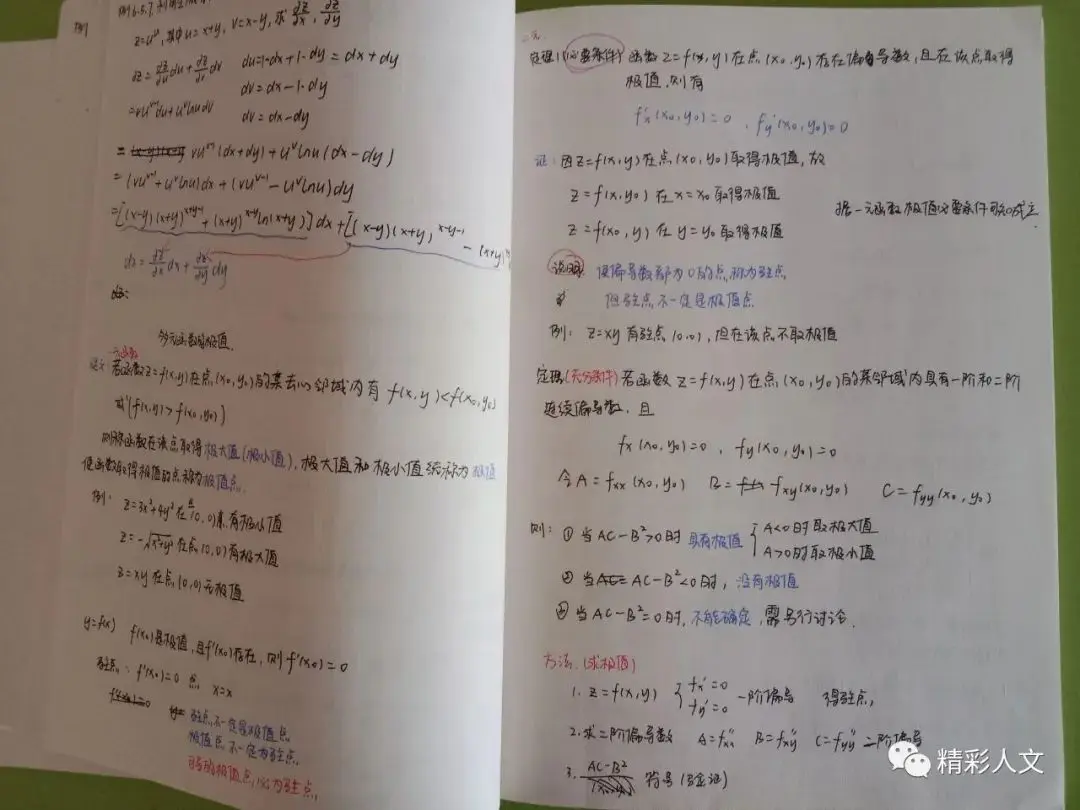 例
例6.5.7.
z=uᵛ, 其中u=x+y, v=x-y, 求 ∂z/∂x, ∂z/∂y
dz=∂z/∂u du+∂z/∂v dv  du=1·dx+1·dy=dx+dy
dv=dx-1·dy
=vuᵛ⁻¹du+uᵛlnudv  dv=dx-dy
= vuᵛ⁻¹(dx+dy)+uᵛlnu(dx-dy)
=(vuᵛ⁻¹+uᵛlnu)dx+(vuᵛ⁻¹-uᵛlnu)dy
=[(x-y)(x+y)ˣ⁻ʸ⁻¹+(x+y)ˣ⁻ʸln(x+y)]dx+[(x-y)(x+y)ˣ⁻ʸ⁻¹-(x+y)
dz=∂z/∂x dx+∂z/∂y dy
多元函数的极值.
二元函数
定义:若函数z=f(x,y)在点(x₀,y₀)的某去心邻域内有 f(x,y)<f(x₀,y₀)
或(f(x,y)>f(x₀,y₀))
则称函数在该点取得极大值(极小值),极大值和极小值统称为极值
使函数取得极值的点称为极值点.
例: z=3x²+4y²在点(0,0)有极小值
z=-√x²+y²在点(0,0)有极大值
z=xy在点(0,0)无极值
y=f(x) f(x₀)是极值,且f'(x₀)存在,则f'(x₀)=0
驻点: f'(x₀)=0 点 x=x
驻点,不一定是极值点
极值点不一定为驻点.
可导的极值点,必为驻点,
二元.
定理1(必要条件) 函数z=f(x,y)在点(x₀,y₀)存在偏导数,且在该点取得
极值,则有
f'x(x₀,y₀)=0 , fy'(x₀,y₀)=0
证:因z=f(x,y)在点(x₀,y₀)取得极值,故
z=f(x,y₀)在x=x₀取得极值
据一元函数极值必要条件可知成立
z=f(x₀,y)在y=y₀取得极值
说明 使偏导数都为0的点,称为驻点
但驻点不一定是极值点
例: z=xy有驻点(0,0),但在该点不取极值
定理(充分条件)若函数z=f(x,y)在点(x₀,y₀)的某邻域内具有一阶和二阶
连续偏导数,且
fx(x₀,y₀)=0 , fy(x₀,y₀)=0
令A=fxx(x₀,y₀) B=fxy(x₀,y₀) C=fyy(x₀,y₀)
则: ①当AC-B²>0时 具有极值 { A<0时取极大值
A>0时取极小值
②当AC-B²<0时, 没有极值
③当AC-B²=0时, 不能确定, 需另行讨论.
方法:(求极值)
1. z=f(x,y) { fx'=0
fy'=0 一阶偏导 得驻点,
2.求二阶偏导数 A=f''xx B=f''xy C=f''yy 二阶偏导
3. AC-B² 符号(验证)
精彩人文